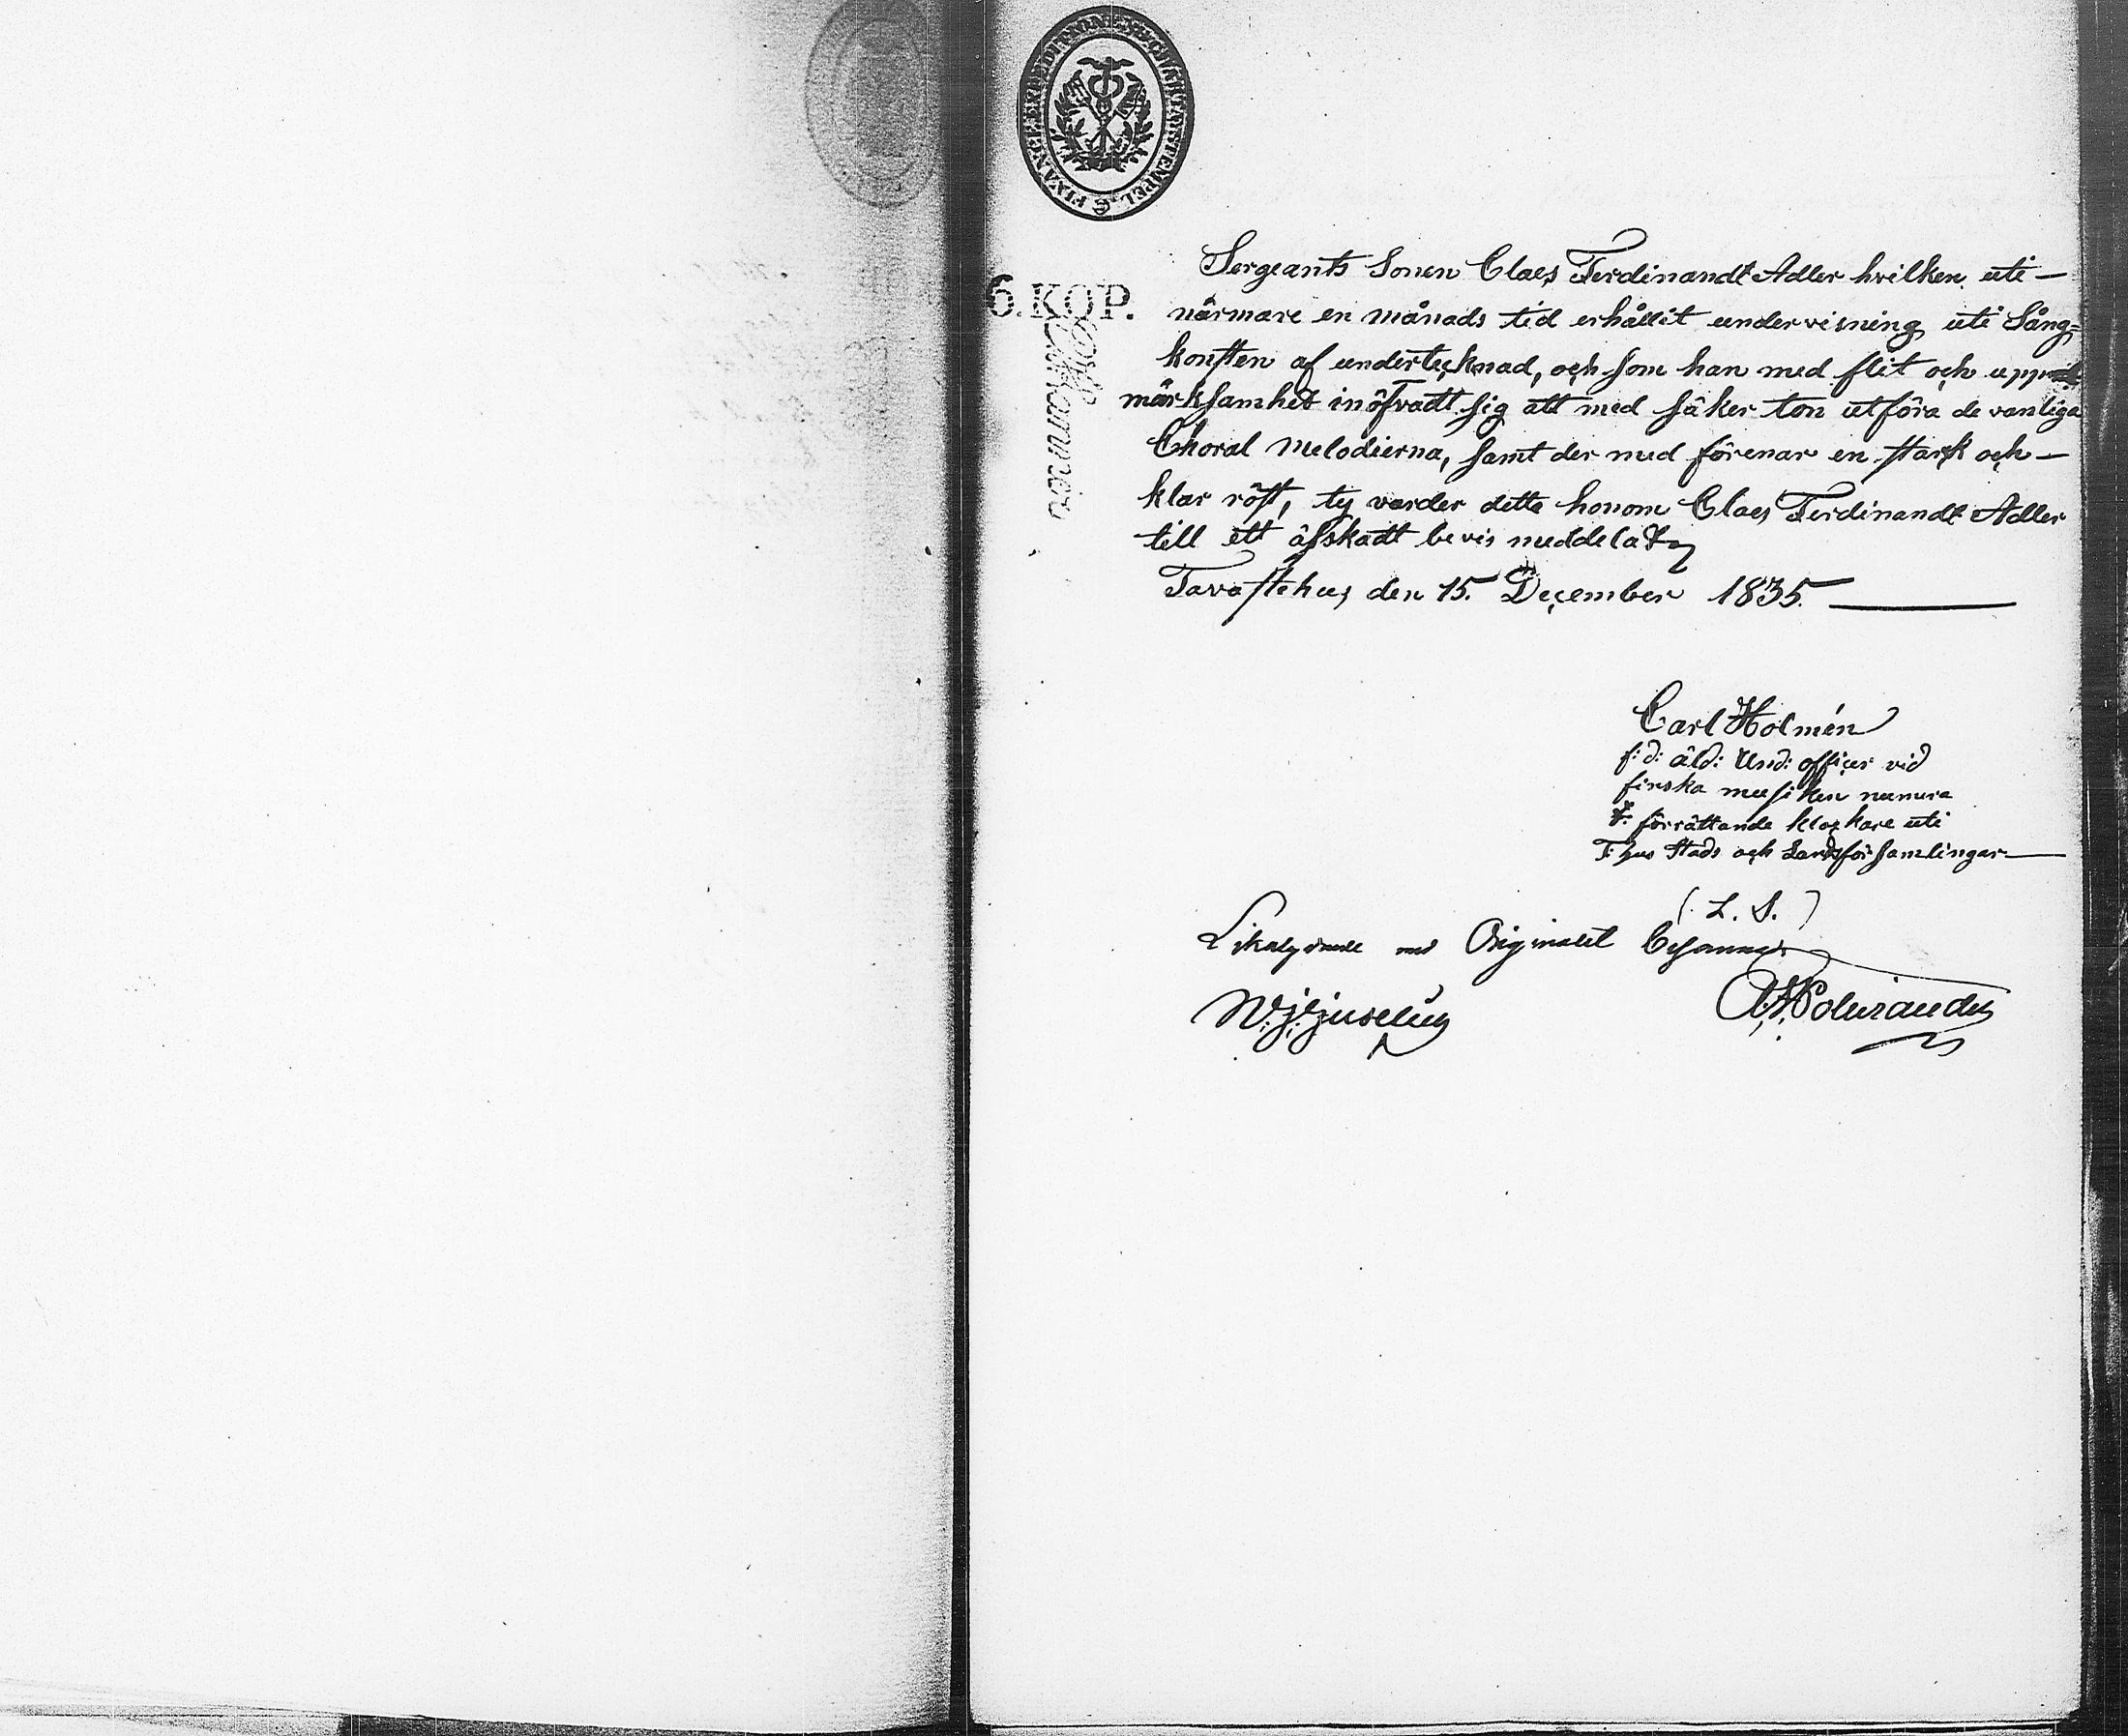 FINANCE EXPEDITIONENS CHARTÆ STEMPEL
6. KOP.
Sergeants Sonen Claes Ferdinandt Adler hvilken uti—
närmare en månads tid erhållit undervisning uti Sång=
konsten af undertecknad, och som han med flit och upp
märksamhet inöfvadt sig att med säker ton utföra de vanliga
Choral Melodierna, samt der med förenar en stark och—
klar röst, ty varder detta honom Claes Ferdinandt Adler
till ett äfskadt bevis meddelat
Tavastehus den 15. December 1835.
Carl Holmén
f: d: äld: Und: officer vid
finska musiken numera
förrättande klockare uti
T: hus Stads och Landsförsamlingar—
(L. S.)
Likalydande med Originalet